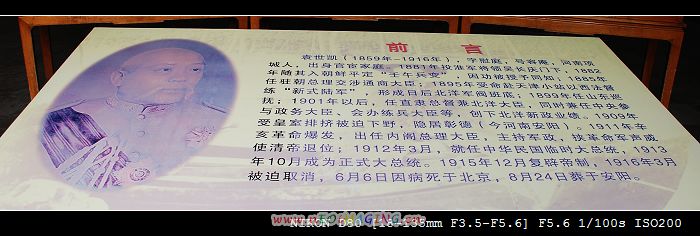 前 言
袁世凯（1859年-1916年），字慰庭，号容庵，河南项
城人，出身官宦家庭。1881年投淮军将领吴长庆门下，1882
年随其入朝鲜平定“壬午兵变”，因功被授予同知；1885年
任驻朝总理交涉通商大臣；1895年受命赴天津小站以西法督
练“新式陆军”，形成日后北洋军阀班底；1899年任山东巡
抚；1901年以后，任直隶总督兼北洋大臣，同时兼任中央参
与政务大臣、会办练兵大臣等，创下北洋新政业绩。1909年
受皇室排挤被迫下野，隐居彰德（今河南安阳）。1911年辛
亥革命爆发，出任内阁总理大臣，主持军政，挟革命军声威
使清帝退位；1912年3月，就任中华民国临时大总统，1913
年10月成为正式大总统。1915年12月复辟帝制，1916年3月
被迫取消，6月6日因病死于北京，8月24日葬于安阳。
NIKON D80 [18-135mm F3.5-F5.6] F5.6 1/100s ISO200